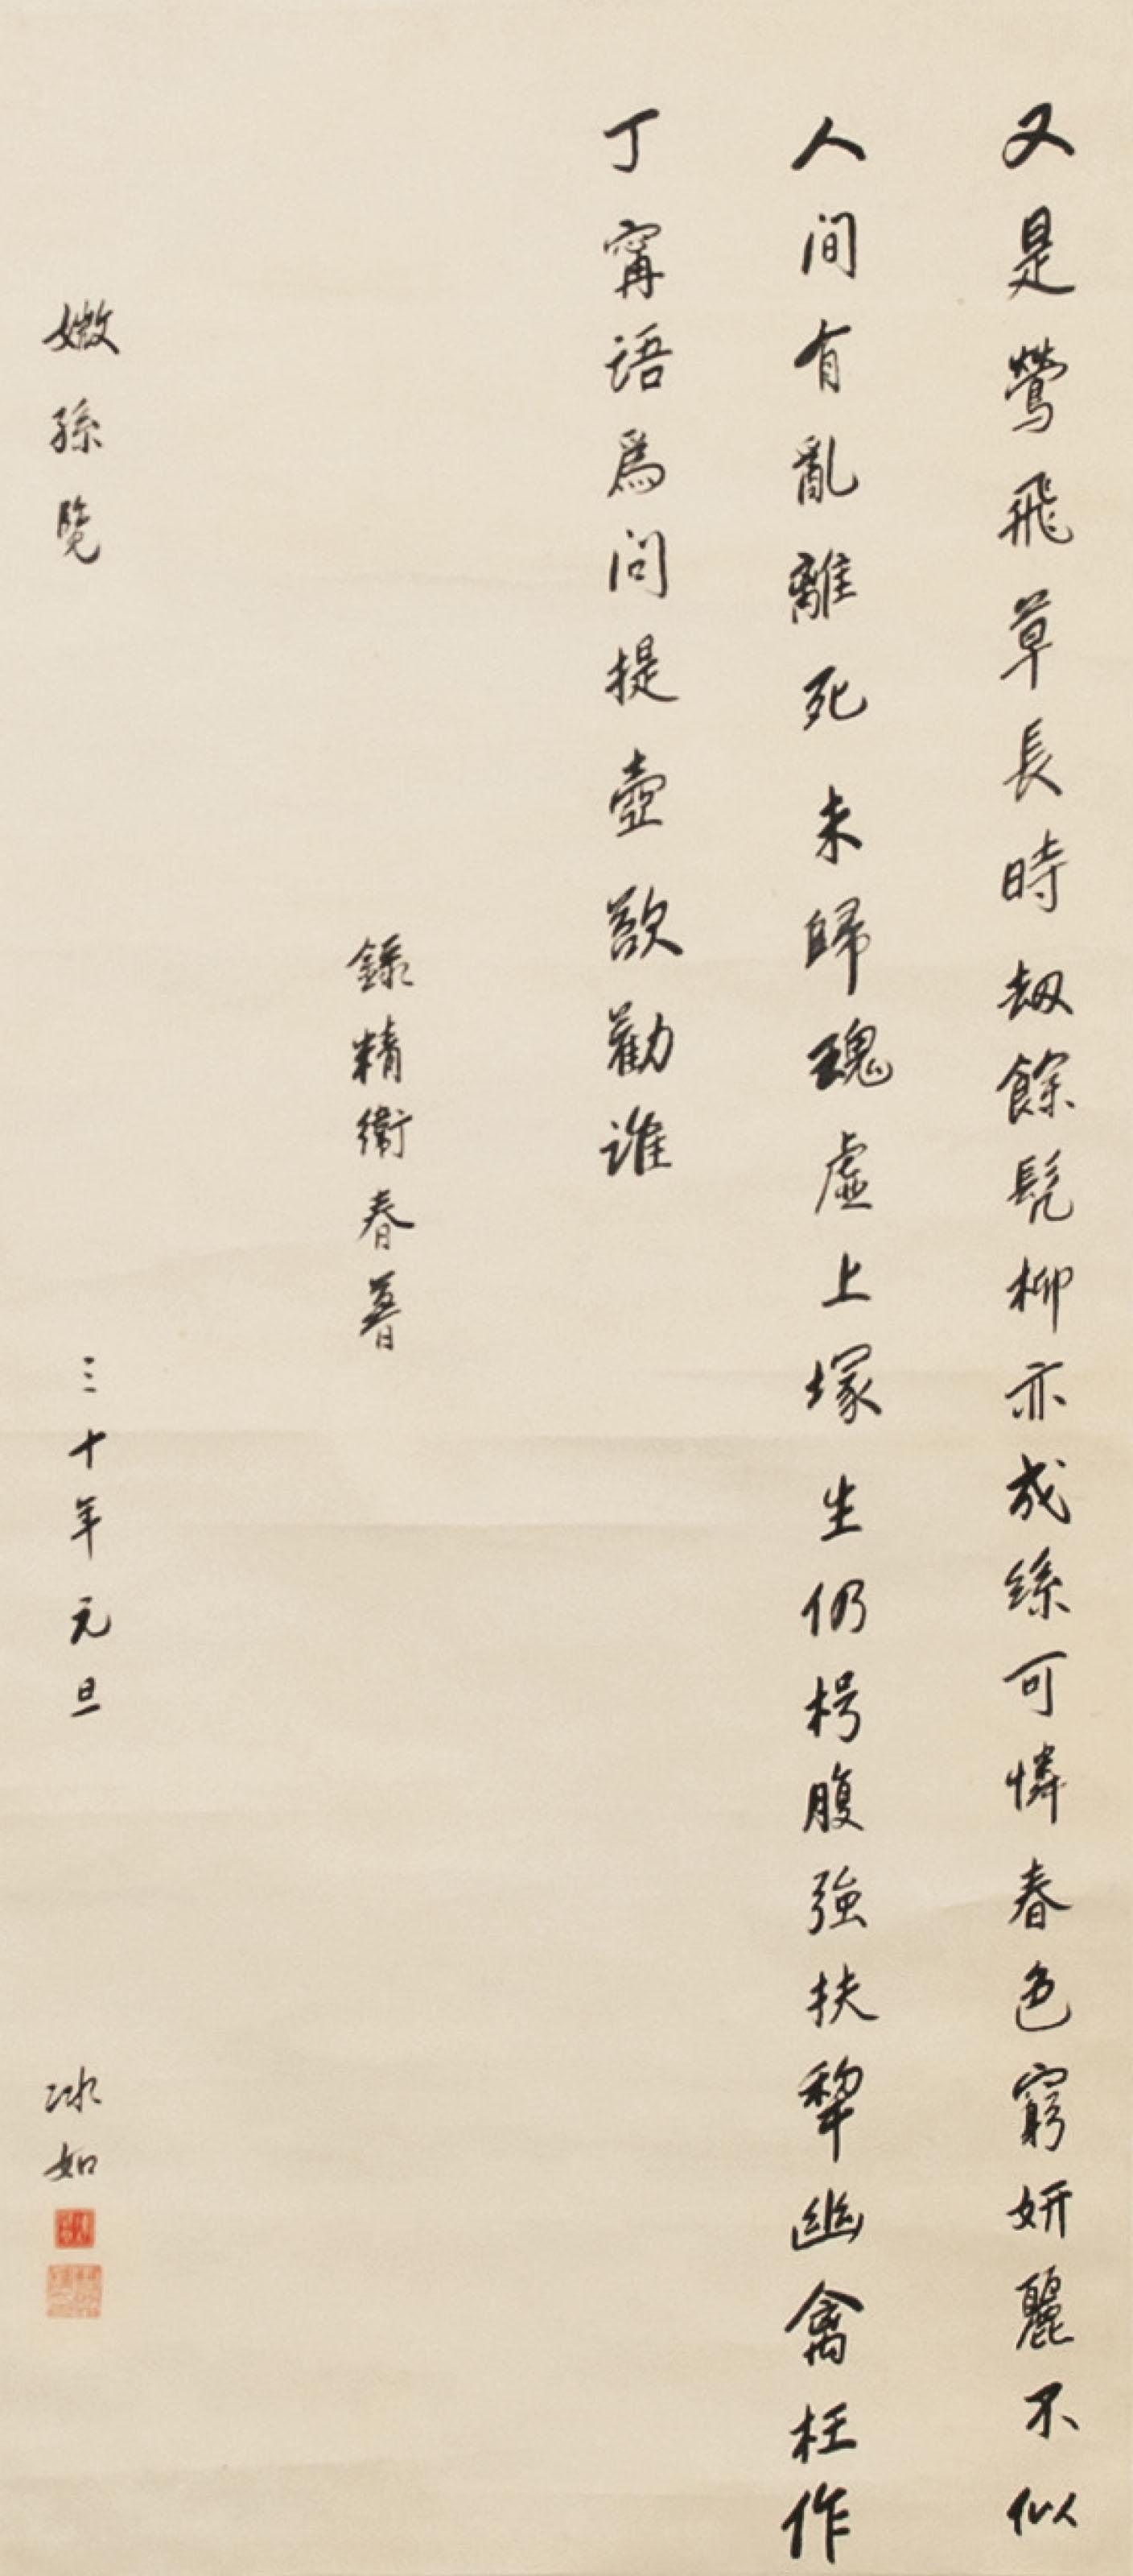 又是鶯飛草長時劫餘髡柳亦成絲可憐春色窮妍麗不似
人间有亂離死未歸魂虛上塚生仍枵腹強扶犂幽禽枉作
丁甯语爲问提壺歘勸谁
錄精衛春暮
媺孫覽
三十年元旦
冰如